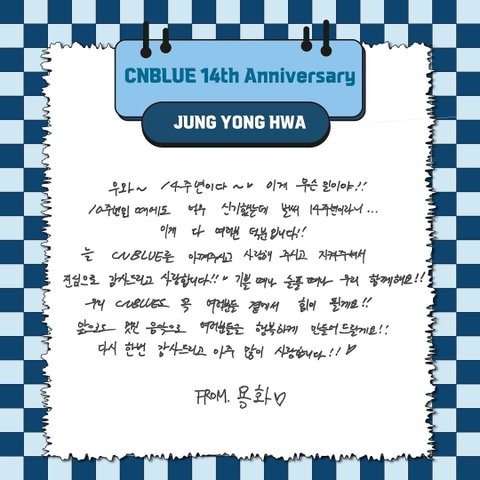 CNBLUE 14th Anniversary
JUNG YONG HWA
우와~ 14주년이다~ 이게 무슨 일이야!!
10주년인 때에도 너무 신기했는데 벌써 14주년이라니...
이게 다 여러분 덕분입니다!!
늘 CNBLUE를 아껴주시고 사랑해 주시고 지켜주셔서
진심으로 감사드리고 사랑합니다!! 기쁠 때나 슬플 때나 우리 함께해요!!
우리 CNBLUE도 꼭 여러분들 곁에서 힘이 될게요!!
앞으로도 멋진 음악으로 여러분들은 행복하게 만들어드릴게요!!
다시 한번 감사드리고 아주 많이 사랑합니다!! ♡
FROM. 용화♡